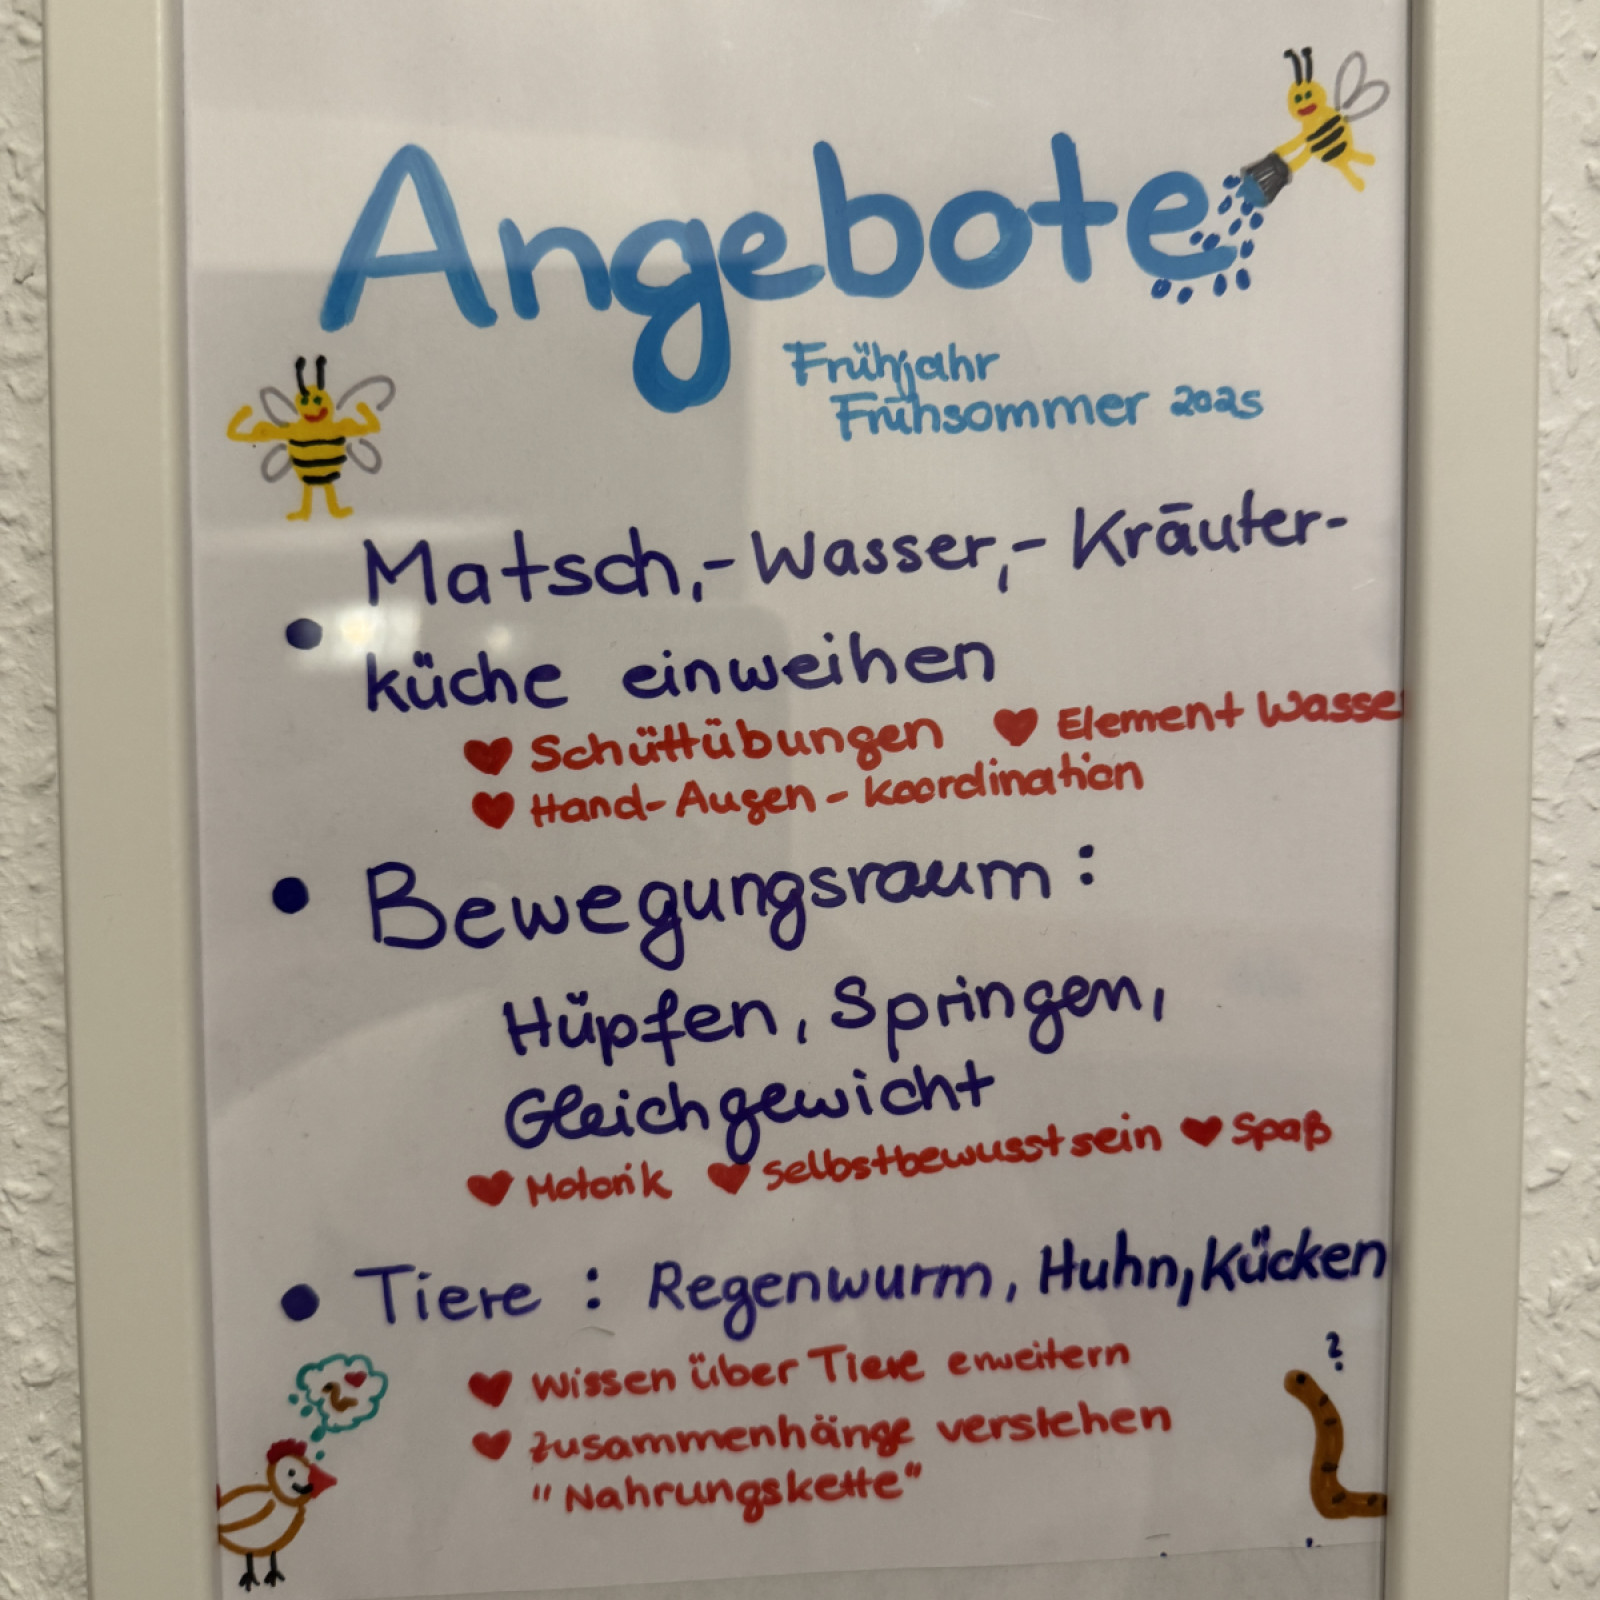 Angebote
Frühjahr
Frühsommer 2025
Matsch,-Wasser,-Kräuter-
• küche einweihen
♥ Schüttübungen ♥ Element Wasse
♥ Hand-Augen-Koordination
• Bewegungsraum:
Hüpfen, Springen,
Gleichgewicht
♥ Motorik ♥ Selbstbewusstsein ♥ Spaß
• Tiere: Regenwurm, Huhn, Kücken
♥ Wissen über Tiere erweitern
♥ Zusammenhänge verstehen
"Nahrungskette"
?